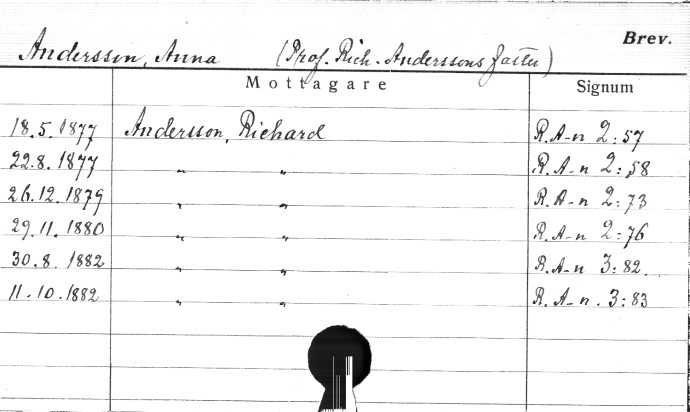 Brev.
Andersson, Anna (Prof. Rich. Anderssons faster)
Mottagare Signum
18.5.1877 Andersson, Richard R. A-n 2:57
22.8.1877 " " R. A-n 2:58
26.12.1879 " " R. A-n 2:73
29.11.1880 " " R. A-n 2:76
30.8.1882 " " R. A-n 3:82.
11.10.1882 " " R. A-n. 3:83